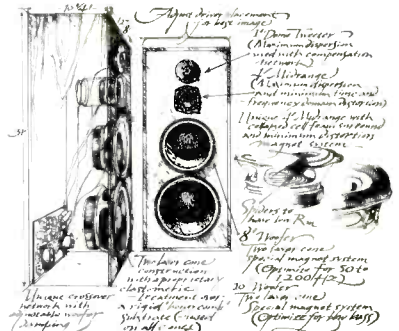 Adjust driver placement
for best image
1" Dome Tweeter
(Maximum dispersion
used with compensation
network)
Midrange
(Maximum dispersion
and minimum time and
frequency domain distortion)
Unique 4" Midrange with
cell foam surround
and minimum distortion
magnet system
Spiders to
have low Rm
8" Woofer
Two layer cone
special magnet system
(Optimize for 50 to
1200Hz)
10" Woofer
Two layer cone
Special magnet system
(Optimize for low bass)
Two layer cone
construction
with proprietary
elastometric
treatment on
a rigid
substrate (based
on all cones)
Unique crossover
network with
adjustable woofer
damping